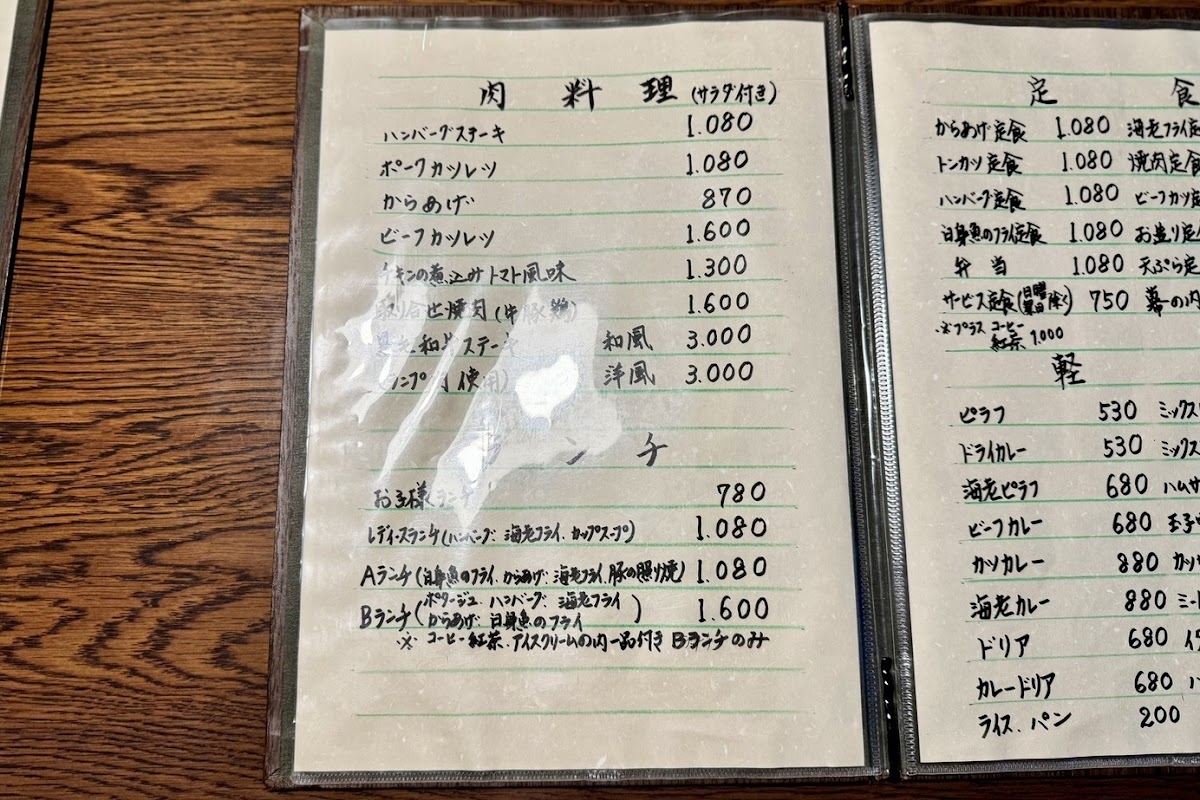 肉料理(サラダ付き)
ハンバーグステーキ 1.080
ポークカツレツ 1.080
からあげ 870
ビーフカツレツ 1.600
チキンの煮込みトマト風味 1.300
取り合せ焼肉(牛豚鶏) 1.600
和牛ステーキ 和風 3.000
使用) 洋風 3.000
ランチ
お子様ランチ 780
レディースランチ(ハンバーグ.海老フライ.カップスープ) 1.080
Aランチ(白身魚のフライ.からあげ.海老フライ.豚の照り焼) 1.080
Bランチ(ポタージュ.ハンバーグ.海老フライ
からあげ.白身魚のフライ) 1.600
※コーヒー紅茶.アイスクリームの内一品付きBランチのみ
定食
からあげ定食 1.080 海老フライ定
トンカツ定食 1.080 焼肉定食
ハンバーグ定食 1.080 ビーフカツ定
白身魚のフライ定食 1.080 お造り定食
弁当 1.080 天ぷら定
サービス定食(日曜祭日除く) 750 幕の内
※プラス コーヒー紅茶 1.000
軽
ピラフ 530 ミックス
ドライカレー 530 ミックス
海老ピラフ 680 ハムサ
ビーフカレー 680 玉子
カツカレー 880 カツ
海老カレー 880 ミート
ドリア 680
カレードリア 680
ライス.パン 200